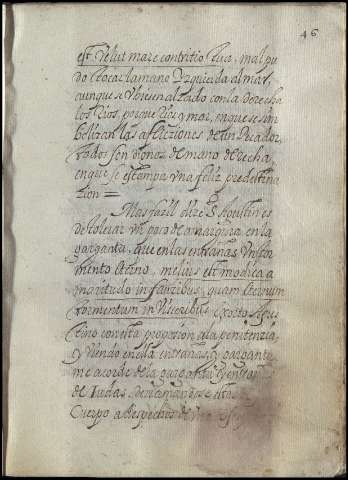 46
est velut mare contritio tua, mal pu
do tocar la mano yzquierda al mar,
aunque se vbiesen alzado con la derecha
los Rios, porque Rios y mar, en que se sim
bolizan las aflictiones de un Pecador,
todos son dones de mano derecha,
en que se estampa vna feliz predestina
cion =
Mas facil dize S. Agustin es
de tolerar vn poco de amargura en la
garganta, que en las entrañas vn tor
mento eterno, melius est modica a
maritudo in faucibus, quam eternum
tormentum in visceribus, exorto Agus
tino con esta proporcion a la penitencia,
y viendo en ella entrañas, y garganta
me acorde de la garganta, y entrañas
de Iudas,
Cuerpo a despechos de